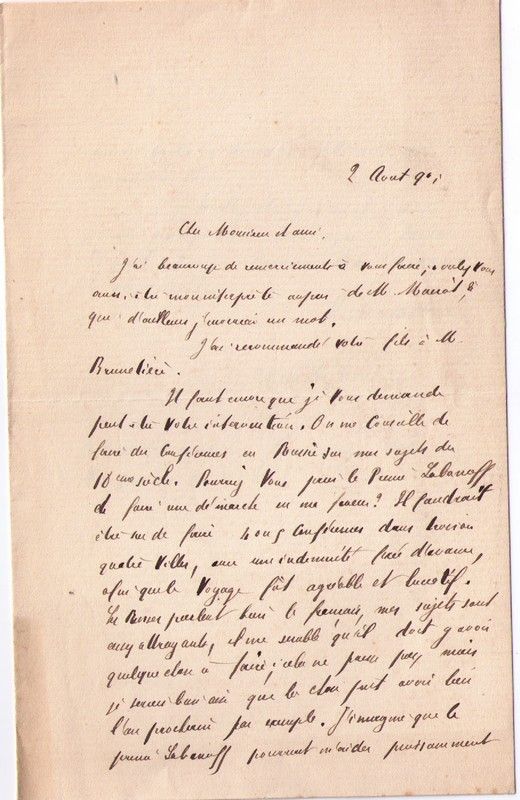 2 Aout 901
Cher Monsieur et ami.
J'ai beaucoup de remerciements à vous faire, voulez vous
aussi être mon interprète auprès de M. à
qui d'ailleurs j'enverrai un mot.
J'ai recommandé votre fils à M.
Brunetière.
Il faut encore que je vous demande
peut-être votre intervention. On me conseille de
faire des conférences en Russie sur mes sujets du
18eme siècle. Pourriez vous prier le Prince Labanoff
de faire une démarche en ma faveur? Il faudrait
être sur de faire 4 ou 5 conférences dans trois ou
quatre villes, avec une indemnité fixée d'avance,
afin que le voyage fût agréable et lucratif.
Les Russes parlent bien le français, mes sujets sont
assez attrayants, il me semble qu'il doit y avoir
quelque chose à faire, cela ne presse pas, mais
je serais bien aise que la chose put avoir lieu
l'an prochain par exemple. J'imagine que le
prince Labanoff pourrait m'aider puissamment